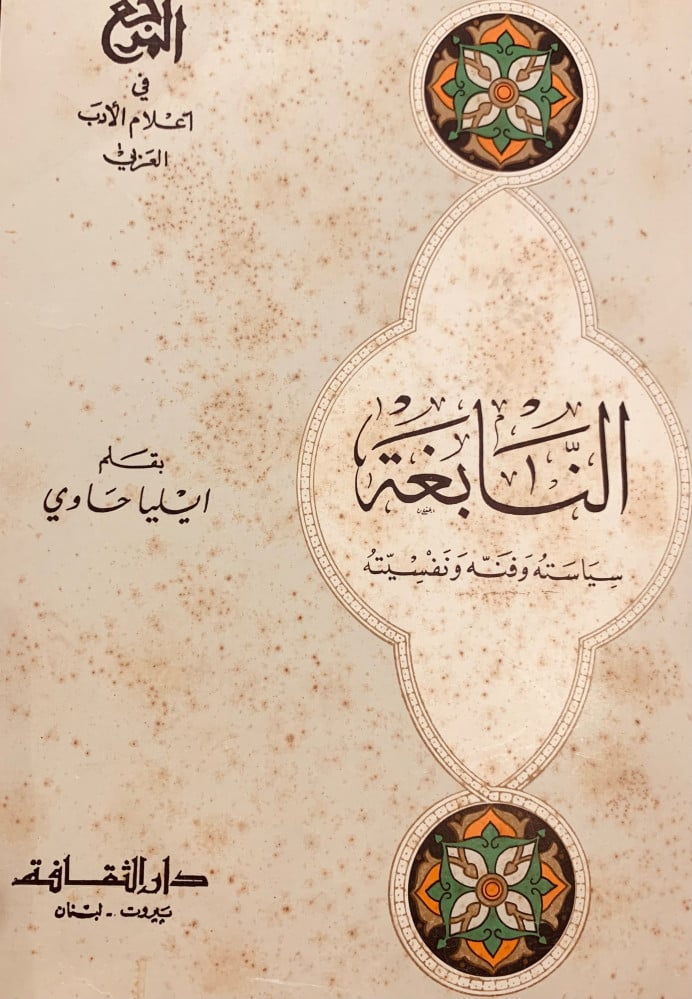 المرجع
في
أعلام الأدب
العربي
النَّابغَة
سِيَاسَتهُ وَفنّه وَنَفْسِيّتهُ
بقلم
ايليا حاوي
دار الثقافة
بيروت - لبنان